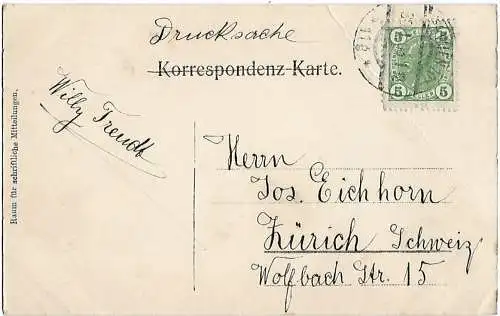 Drucksache
Korrespondenz-Karte.
5 5
5 5
Willy Trendt
Raum für schriftliche Mitteilungen.
Herrn
Jos. Eichhorn
Zürich Schweiz
Wolfbach Str. 15